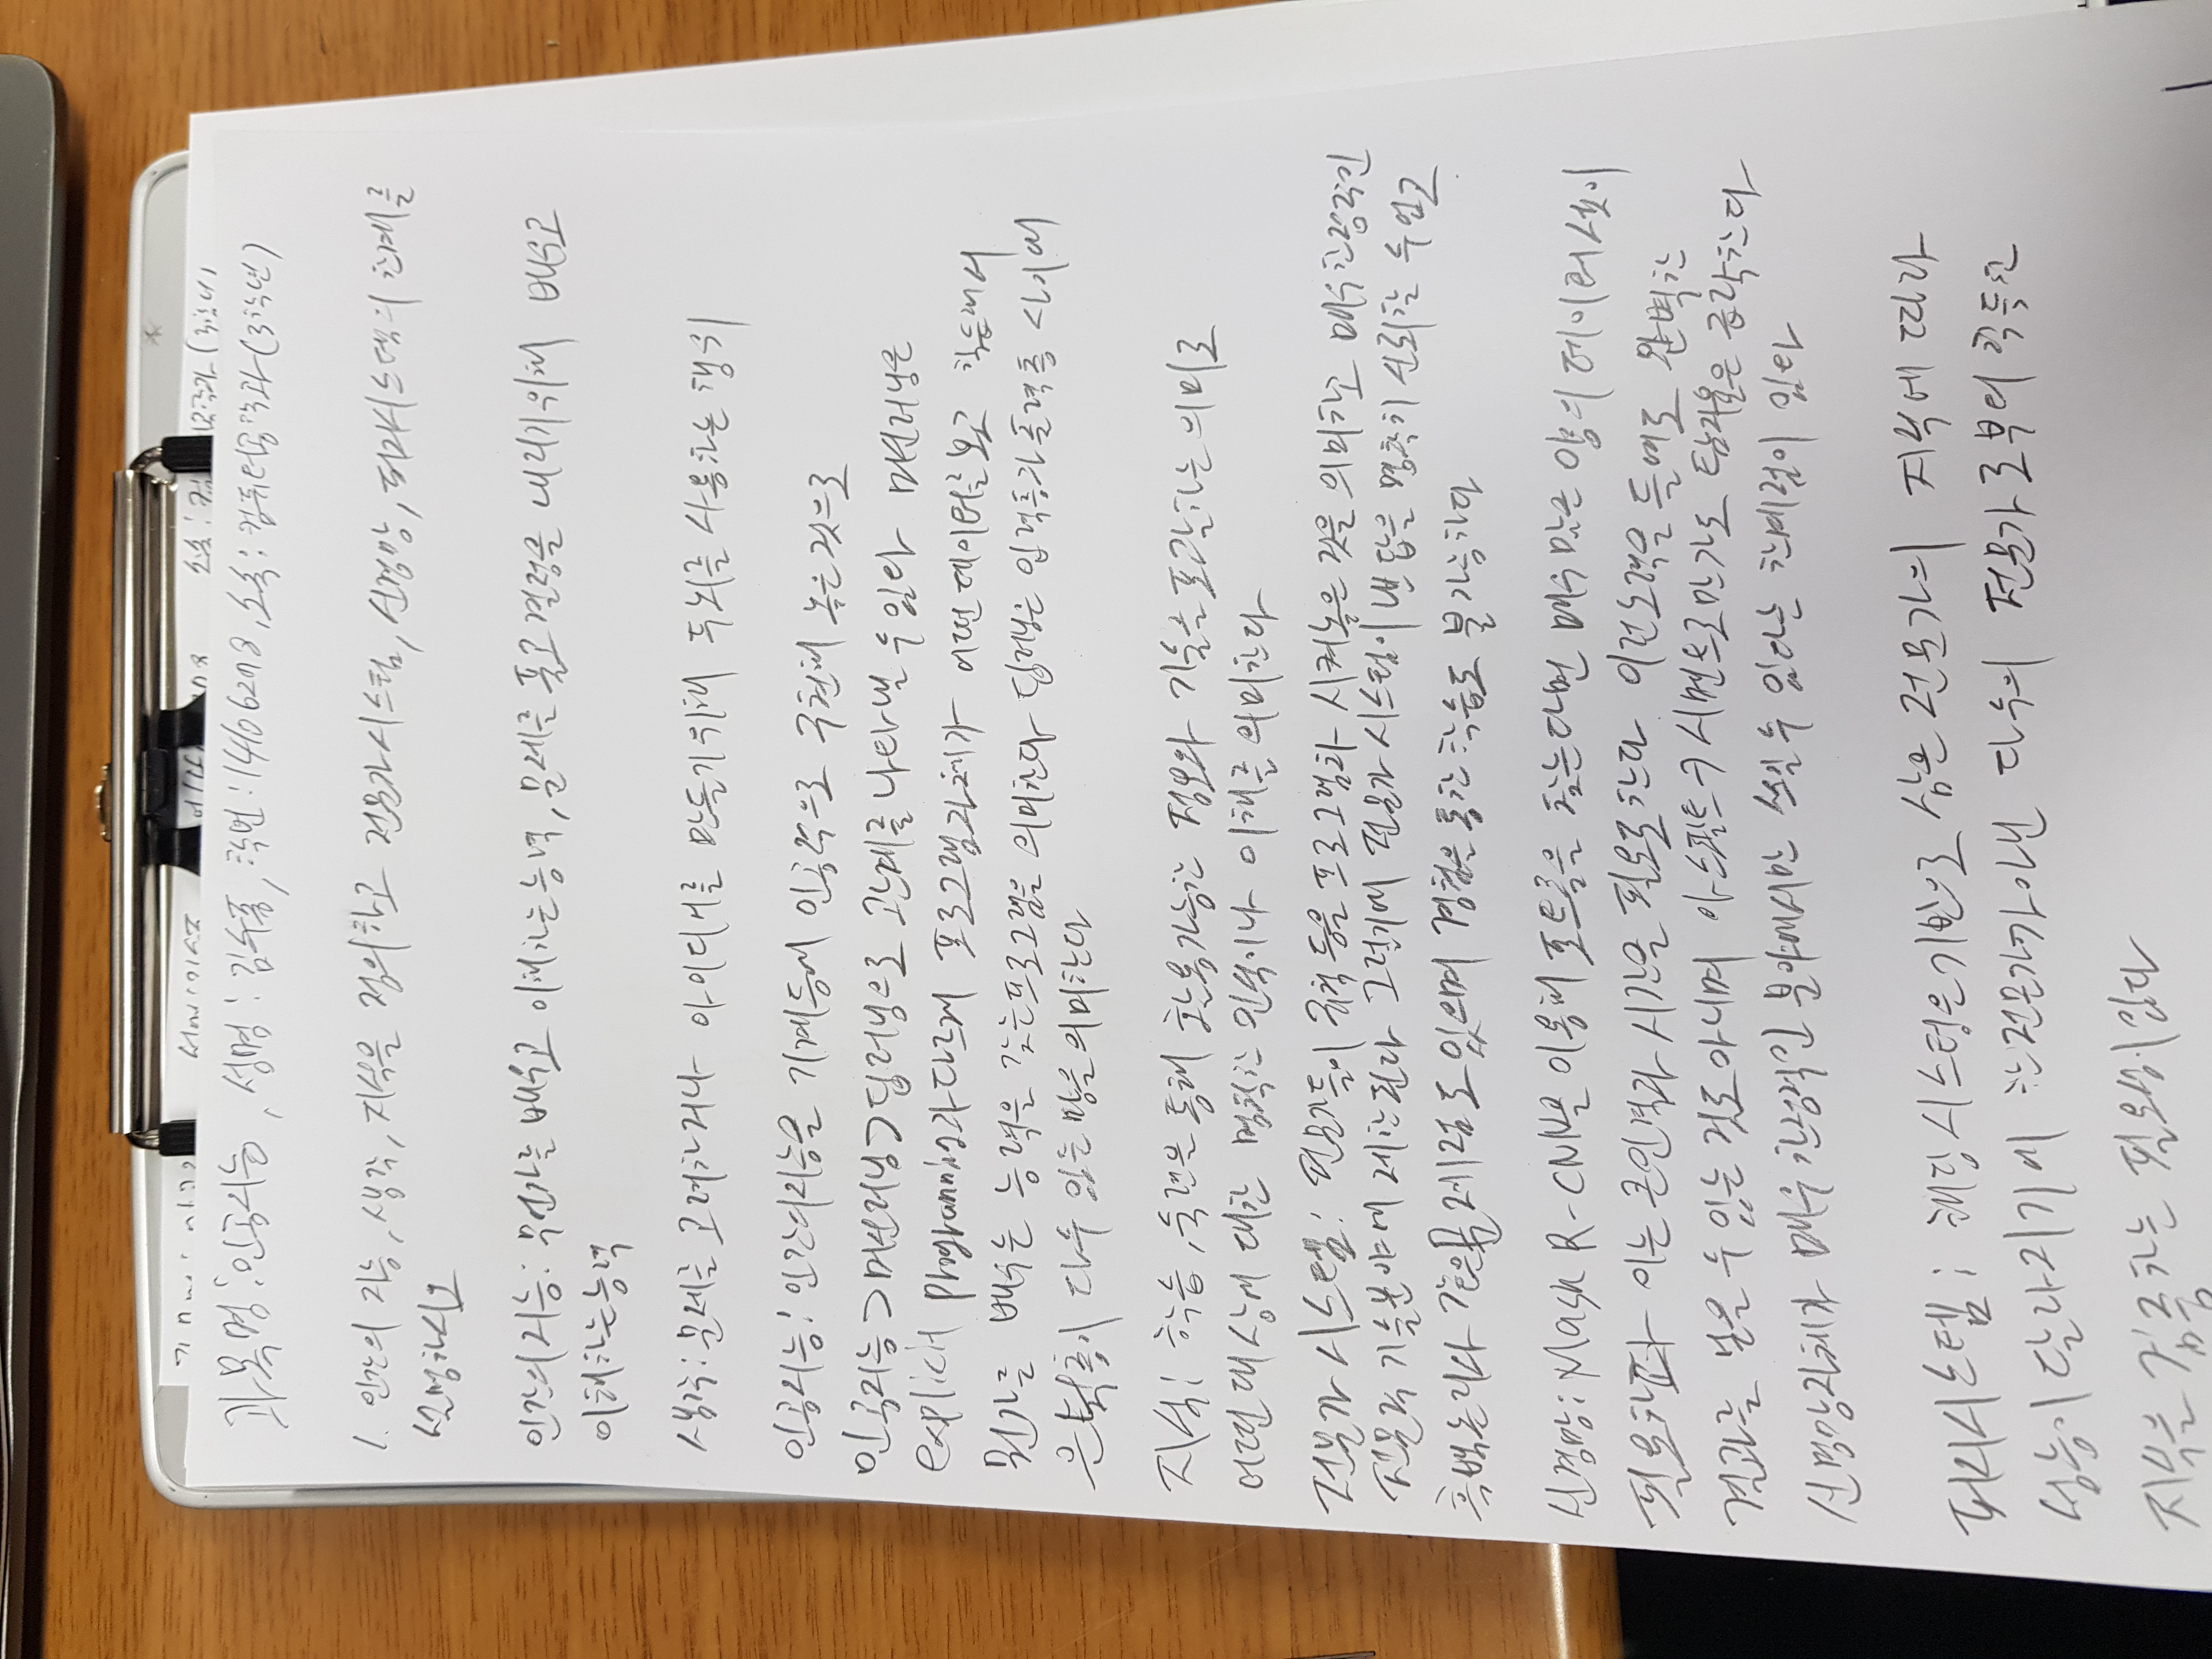 과목명: 인공지능, 성명: 김수홍, 학번: 14106298, 소속: 컴퓨터공학과 (3학년)
1. 인간의 지능, 생각, 지식을 정의하고 전문가시스템, 신경망, 퍼지시스템의 한계를
설명하시오
인간의 지능: 무언가를 배우고 이해하는 능력, 문제를 풀고 결정을 내리기 위해 배우고
이해하는 능력
생각: 문제를 고려하거나 아이디어를 만들기 위해 두뇌를 사용하는 행위
인공지능: 인간의 지능을 기계 등에 인공적으로 구현해 놓은 것으로
인공지능 > 머신러닝 > 딥러닝으로 관계를 나타낼 수 있다 머신러닝은
explicit programming과 다르게 프로그램 자체가 어떤 데이터를 보고 학습해서
뭔가를 배우는 능력을 갖는 프로그램을 의미한다 딥러닝은 입력층과 출력층 사이에
은닉층이 다수 있는 망을 의미한다
지식: 학습, 숙련을 통해 활용가능한 정보와 기술을 포괄하는 의미로
어떤 대상에 대한 명확한 인식이나 이해를 의미한다
전문가 시스템: 전문가들이 규칙 등을 프로그램화 시켜놓은 것을 의미하고 매우 한정적인
전문적 기술분야에 제한된다 그렇기에 전문가 시스템이 낸 답을 명확히 신뢰할 수 없고
흑백논리와 같은 문제점도 있으며 경험을 통한 학습도 불가능하다
신경망: Mask R-CNN을 이용해 포트홀을 찾는다면 매우 많은 양의 데이터 셋이
필요하고 이는 큰 인력과 시간을 필요로 한다 이런 노력을 들여도 완벽한
결과를 얻을 수 있는 것도 아니며 아스팔트 → 시멘트로만 가도 탐지율은 급락한다
신경망 자체가 매우 한정적인 분야에서만 쓰일 수 있다는 한계점이 있다
퍼지시스템: 해당 시스템은 기반으로 삼은 전문가의 지식에 따라
성능이 달라지기에 한 전문가가 아닌 다수의 전문가로부터 획득한
지식을 검증하는 필요성이 있다